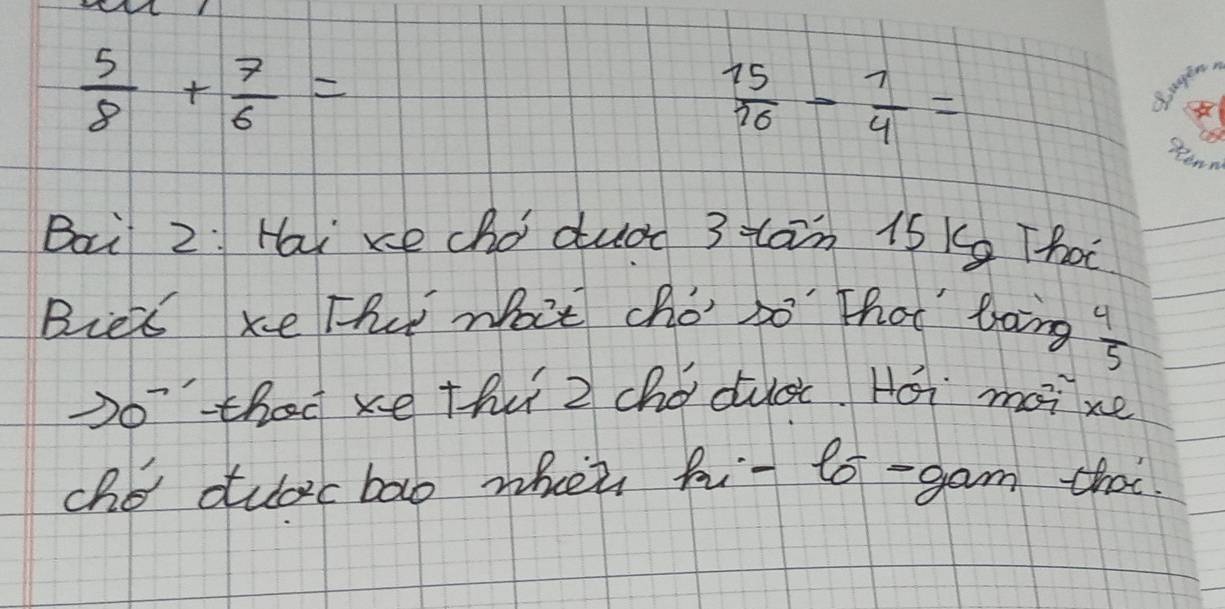 5/8 + 7/6 =    15/16 - 1/4 =
Bài 2: Hai xe chở được 3 tấn 15 kg Thóc.
Biết xe Thứ nhất chở số Thóc bằng 4/5
số thóc xe thứ 2 chở được. Hỏi mỗi xe
chở được bao nhiêu ki-lô-gam thóc.
Luyện
Rèn